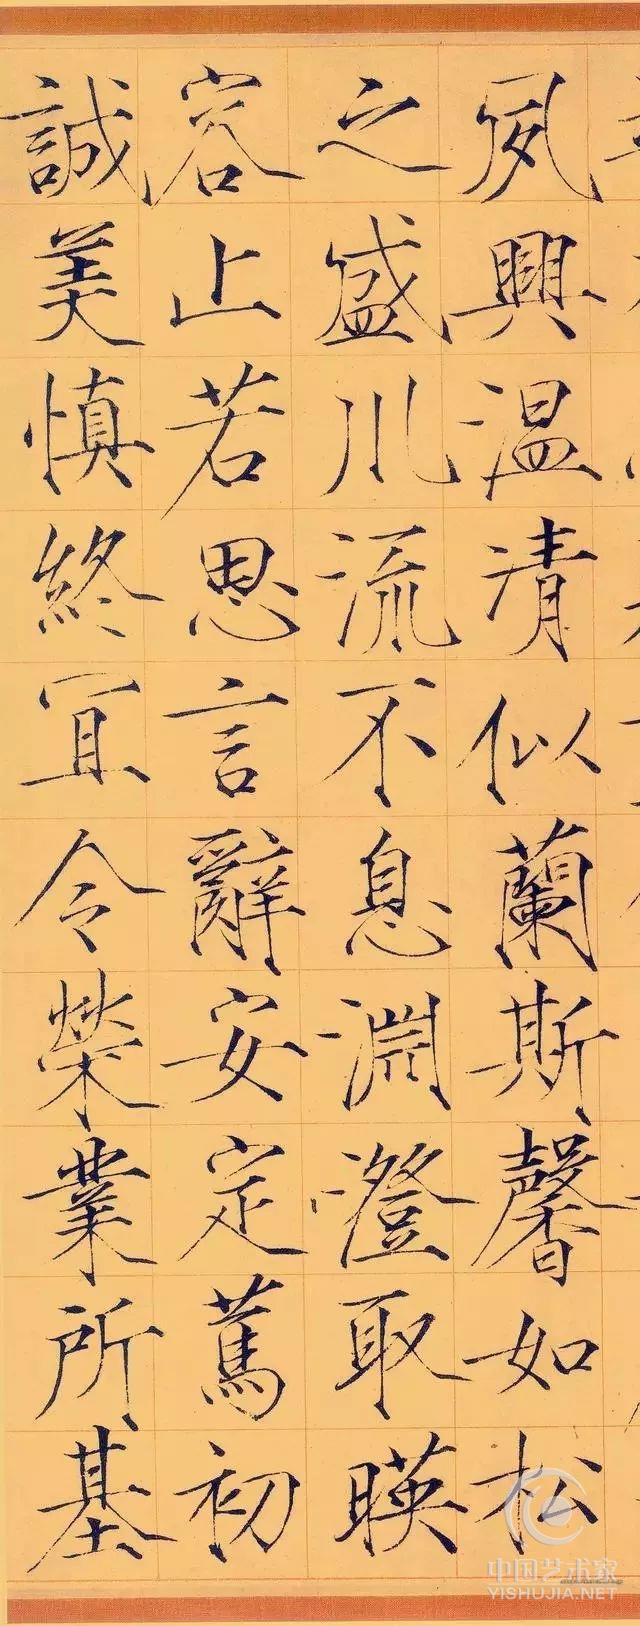 夙興温凊似蘭斯馨如松
之盛川流不息淵澄取暎
容止若思言辭安定萬初
誠美慎終宜令榮業所基
中国艺术家
YISHUJIA.NET